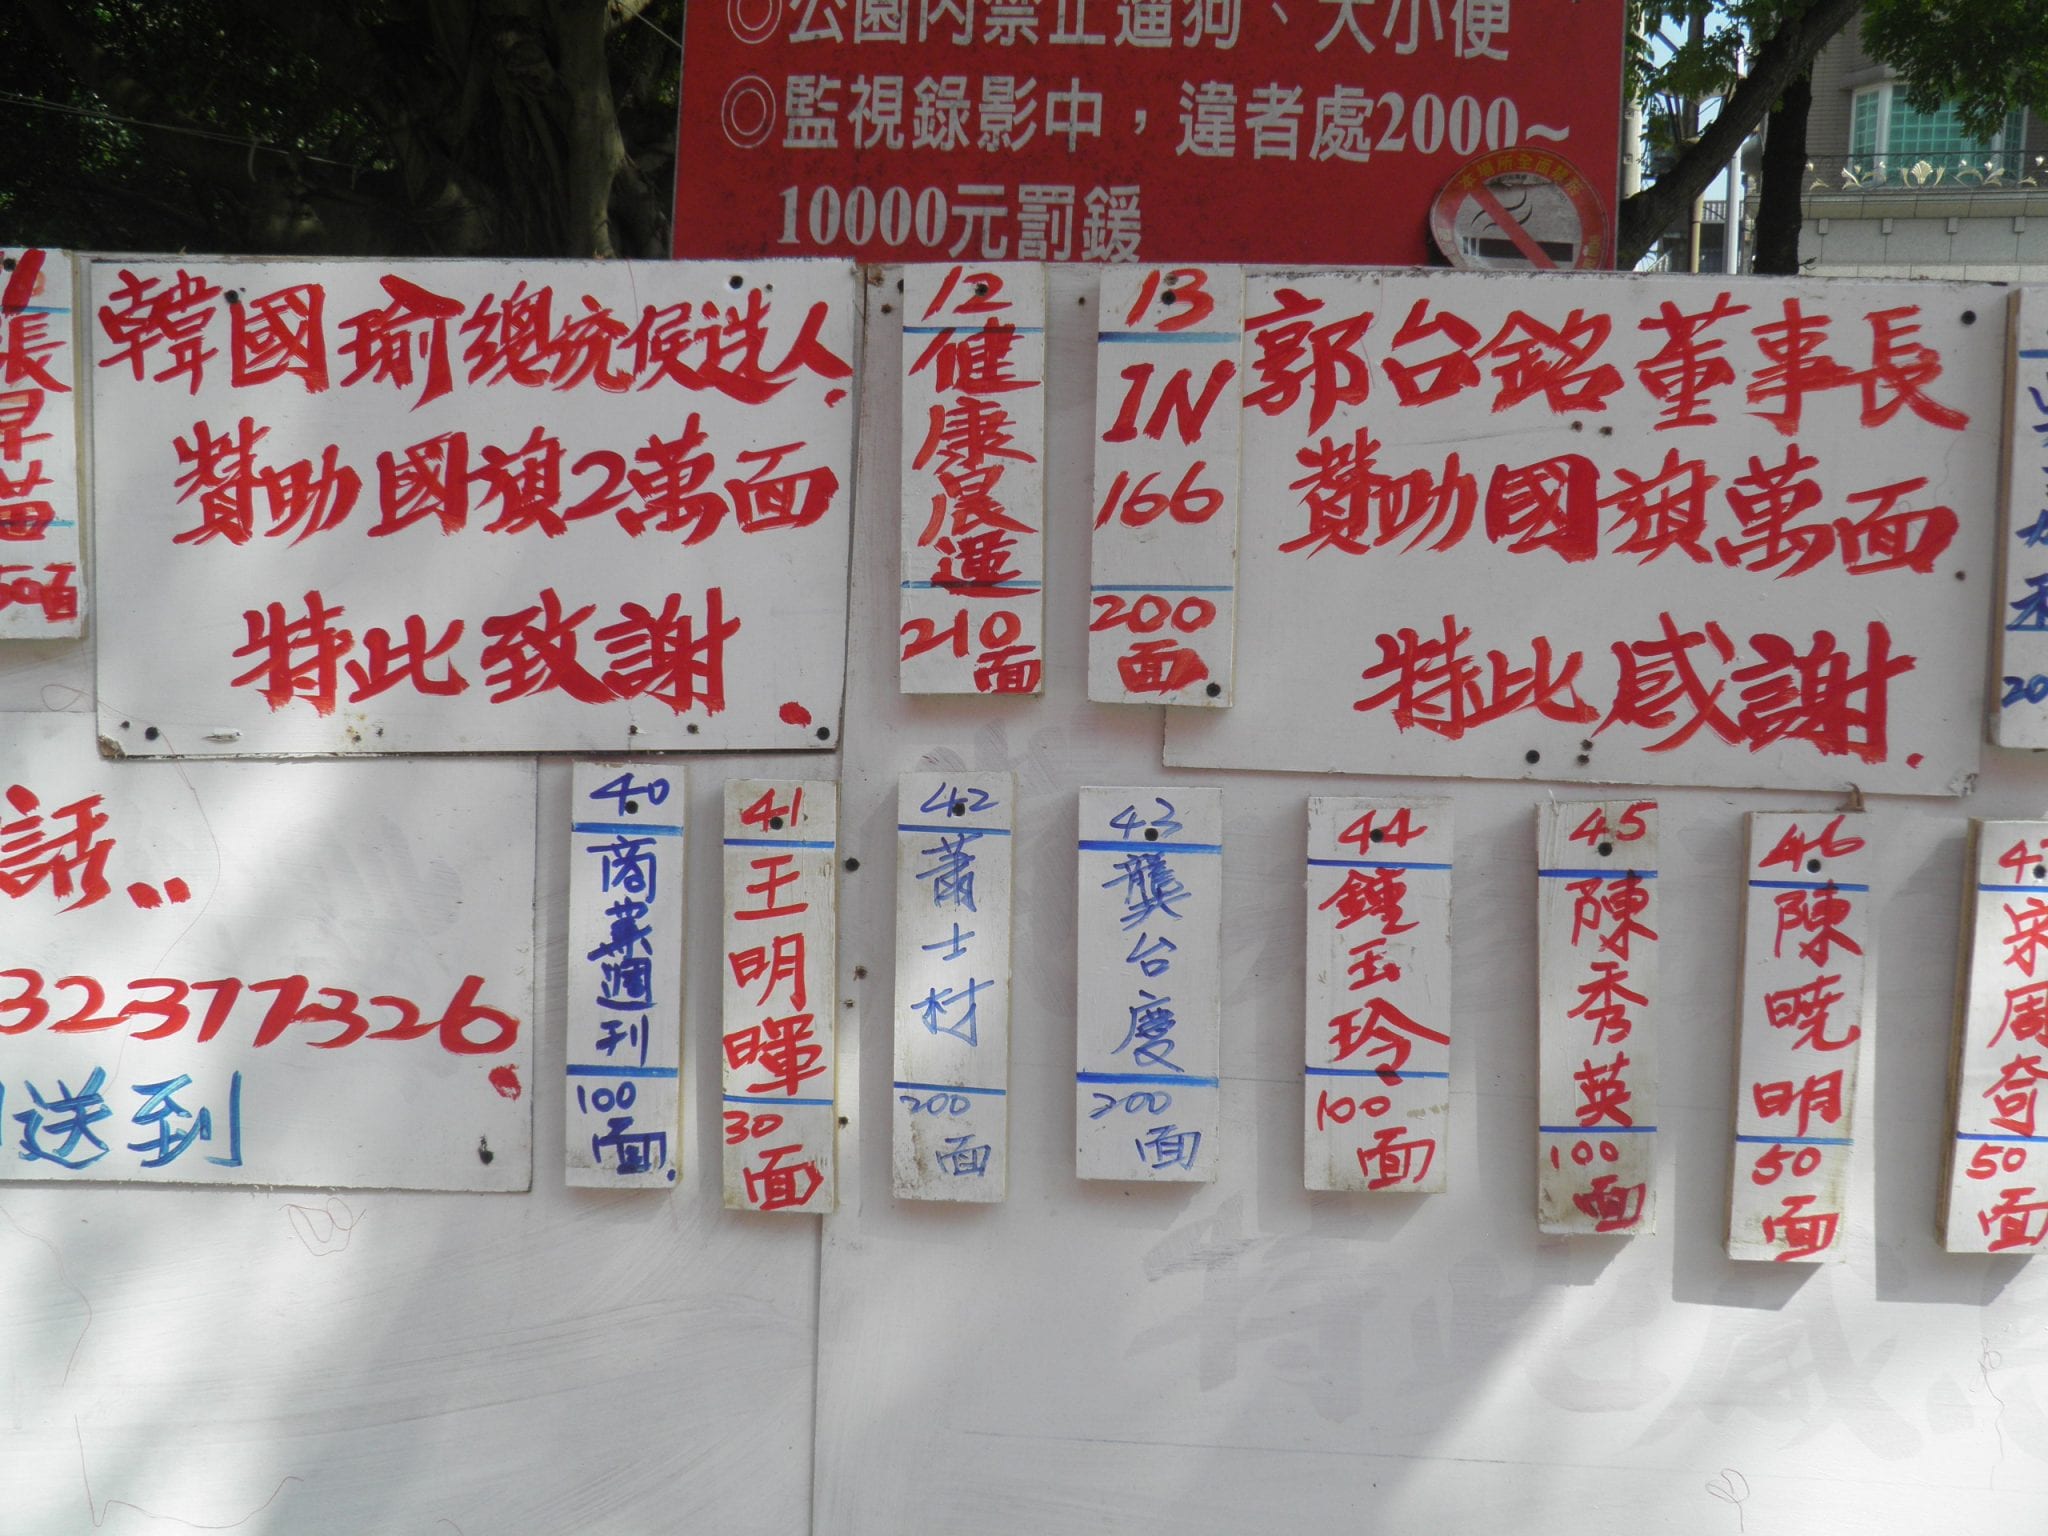 ◎公園內禁止遛狗、大小便
◎監視錄影中，違者處2000~
10000元罰鍰
韓國瑜總統候选人.
贊助國旗2萬面
特此致謝.
12
健康晨運
210面
13
IN
166
200面
郭台銘董事長
贊助國旗萬面
特此感謝.
話..
32377326.
送到
40
商業週刊
100面.
41
王明暉
30面
42
蕭士材
200面
43
龔台慶
200面
44
鍾玉玲
100面
45
陳秀英
100面
46
陳曉明
50面
宋周奇
50面